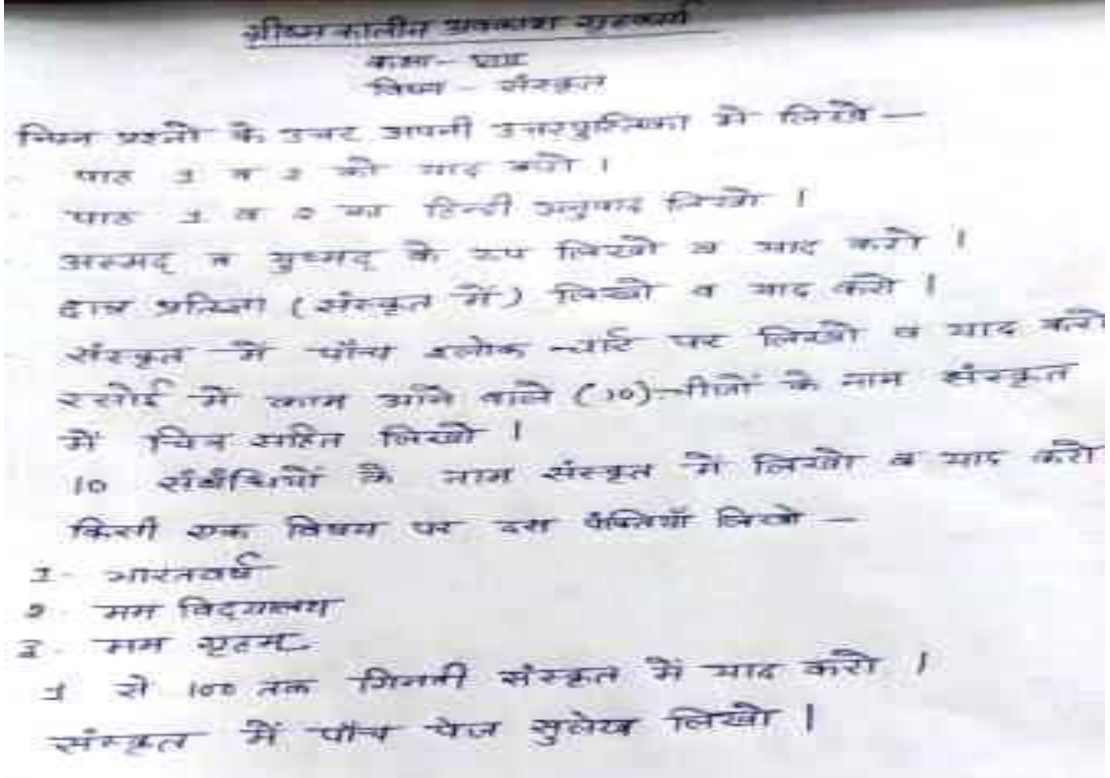 ग्रीष्मकालीन अवकाश गृहकार्य
कक्षा -
विषय - संस्कृत
निम्न प्रश्नों के उत्तर अपनी उत्तरपुस्तिका में लिखे —
पाठ 1 व 2 को याद करो ।
पाठ 1 व 2 का हिन्दी अनुवाद लिखो ।
अस्मद् व युष्मद् के रूप लिखो व याद करो ।
छात्र प्रतिज्ञा (संस्कृत में) लिखो व याद करो ।
संस्कृत में पाँच श्लोक चार्ट पर लिखो व याद करो
रसोई में काम आने वाले (10) चीजों के नाम संस्कृत
में चित्र सहित लिखो ।
10 संबंधियों के नाम संस्कृत में लिखो व याद करो
किसी एक विषय पर दस पंक्तियाँ लिखो —
1- भारतवर्ष
2- मम विद्यालय
3- मम गृहम्
1 से 100 तक गिनती संस्कृत में याद करो ।
संस्कृत में पाँच पेज सुलेख लिखो ।